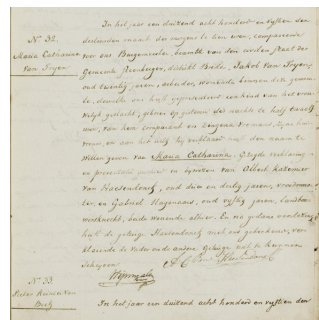 N.º 32.
Maria Catharina
Van Tryen
In het jaar een duizend acht honderd en vyftien den
dertienden maart des morgens te tien uren, compareerde
voor ons Burgemeester, beambte van den civilen staat der
Gemeente, distrikt Breda, Jakob van Tryen
oud twintig jaren, arbeider, wonende binnen deze gemeen-
te, dewelke ons heeft gepresenteerd een kind van het vrou-
welyk geslacht, geboren op gisteren des nachts te half twaalf
uren, van hem comparant en
en aan het welk hy verklaart heeft den naam te
willen geven van Maria Catharina. Gezegde verklaring
en presentatie gedaan in bywezen van Albert
van Haestendonck, oud drie en dertig jaren,
ter, en Gabriel Hagenaars, oud vyftig jaren,
beide wonende alhier. En na gedane voorlezing
heeft de getuige Haestendonck met ons geteekend, ver-
klarende de vader en de andere getuige niet te kunnen
schryven
N.º 33.
Pieter
In het jaar een duizend acht honderd en vyftien den